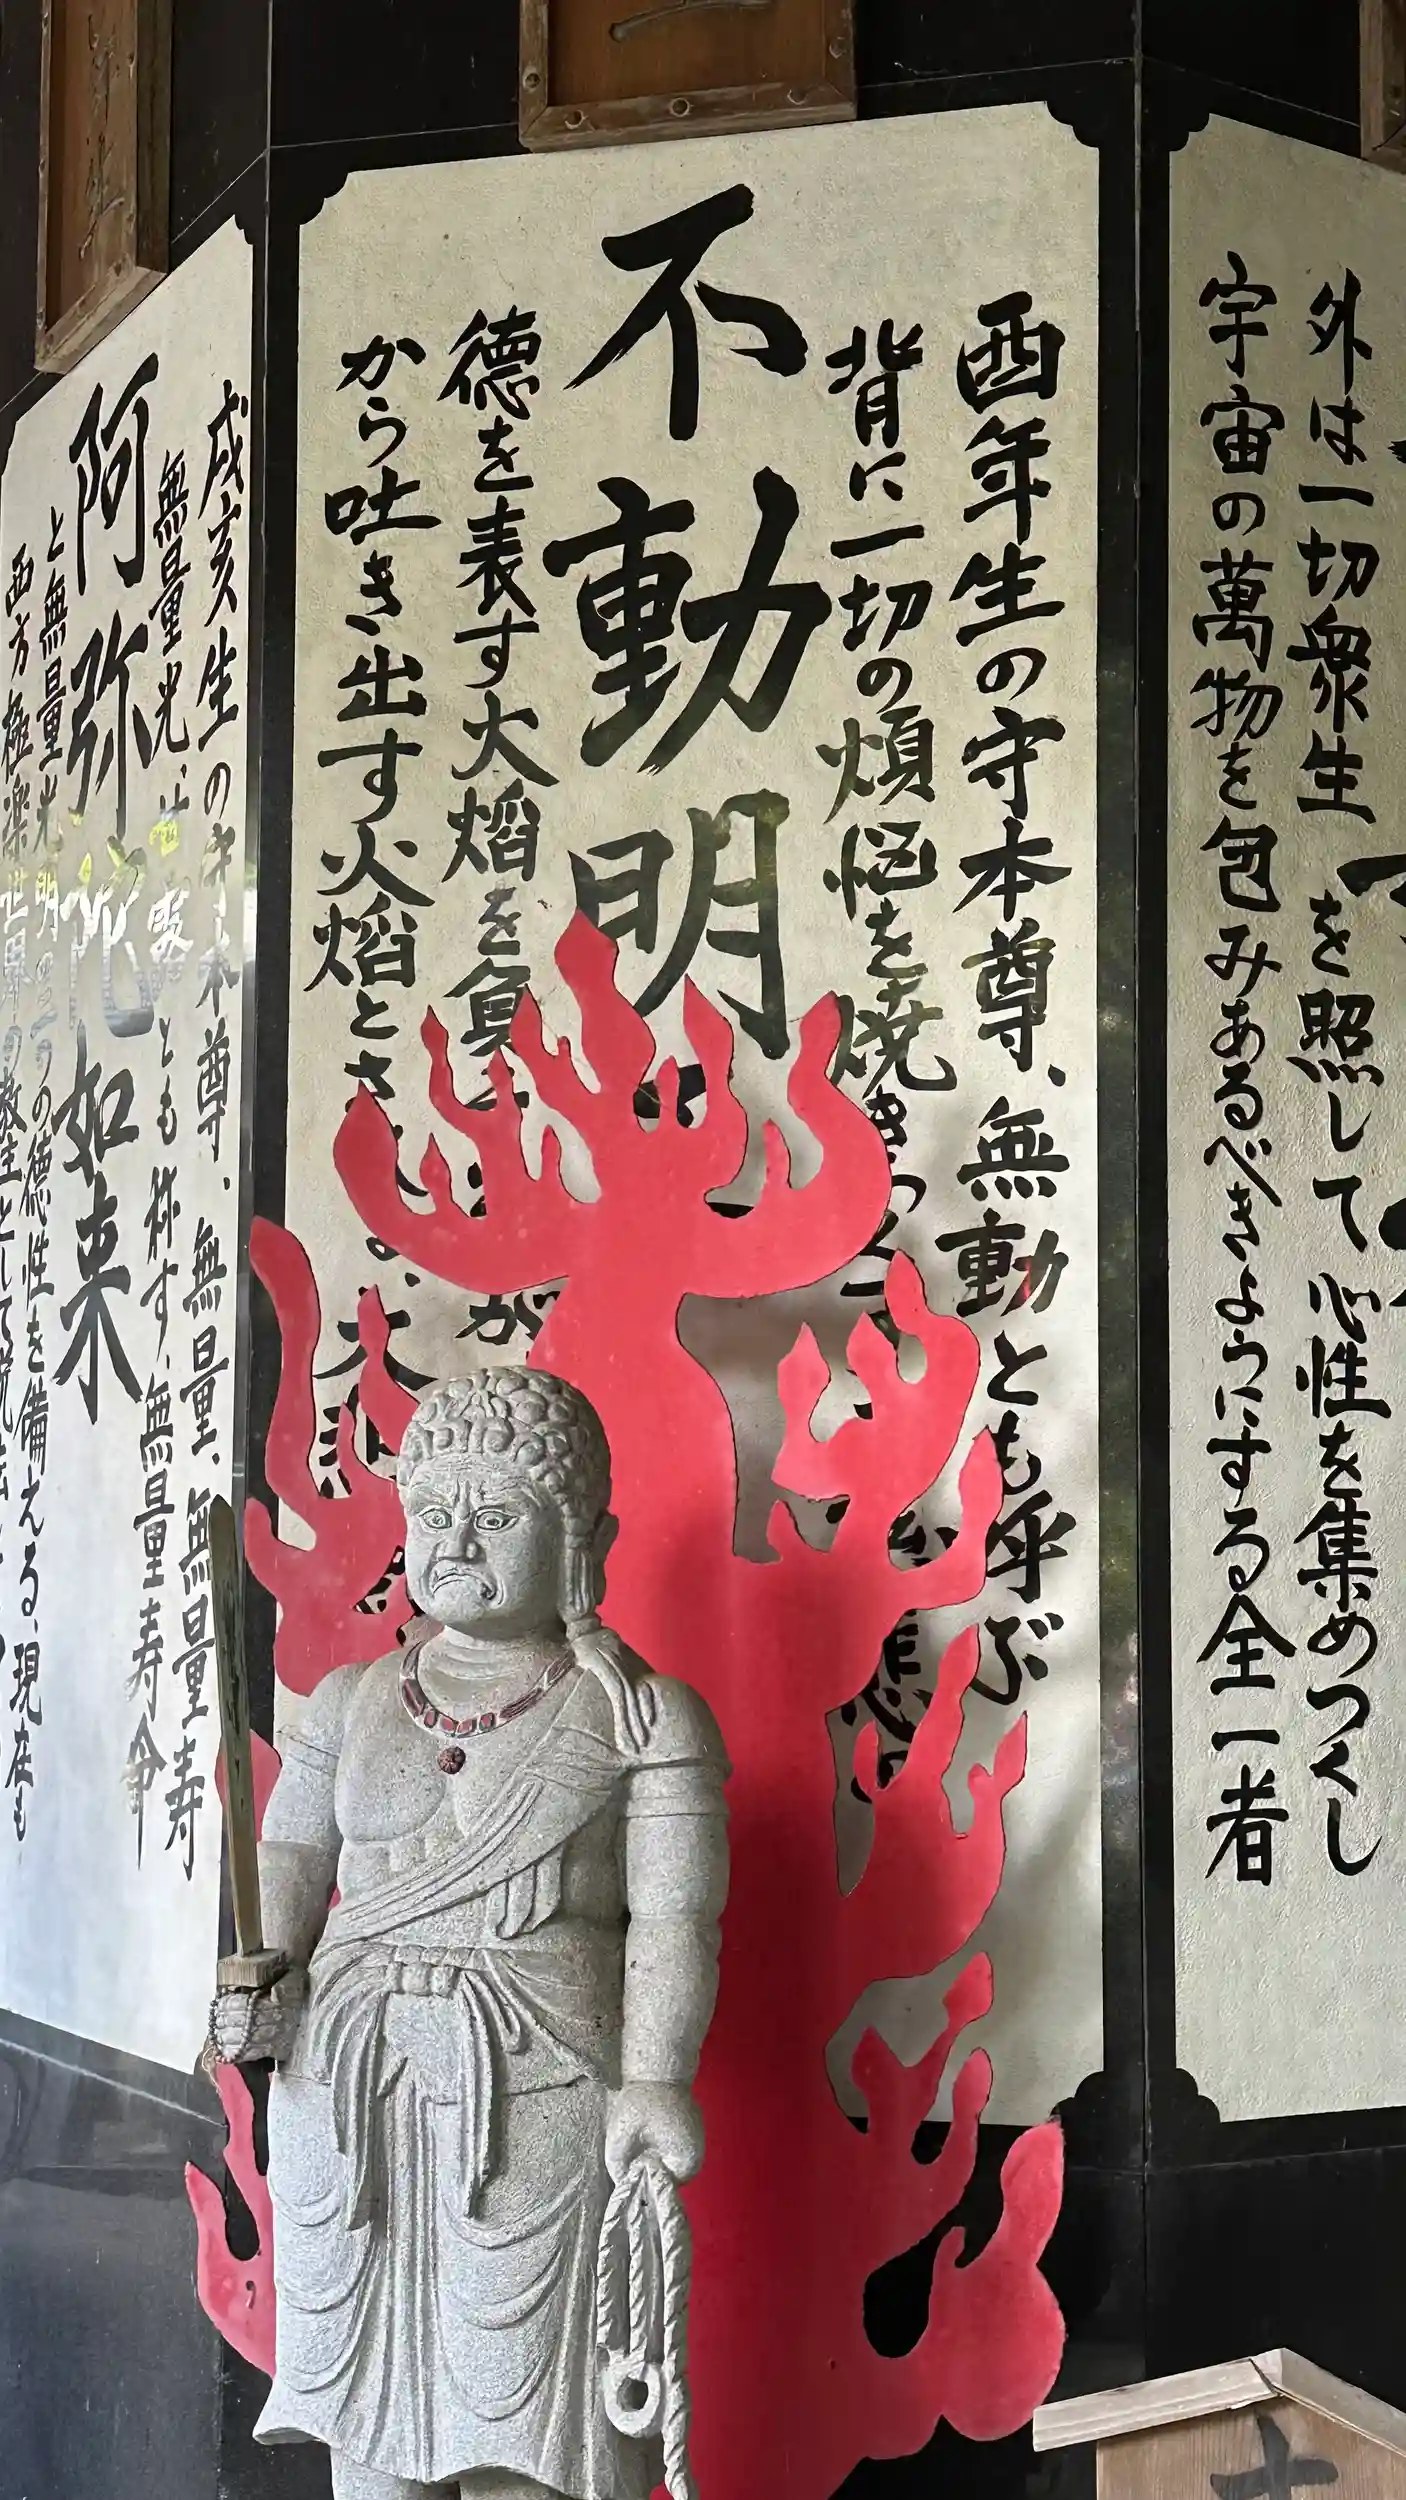 外は一切衆生を照して心性を集めつくし
宇宙の萬物を包みあるべきようにする全一者
酉年生の守本尊、無動とも呼ぶ
背に一切の煩悩を焼きつくす
不動明
徳を表す大焔を負
から吐き出す火焔とさ
戌亥生の守本尊、無量、無量寿
無量光、とも称す、無量寿命
阿弥陀如来
と無量光明の二つの徳性を備える、現在も
西方極楽世界の教主として説法